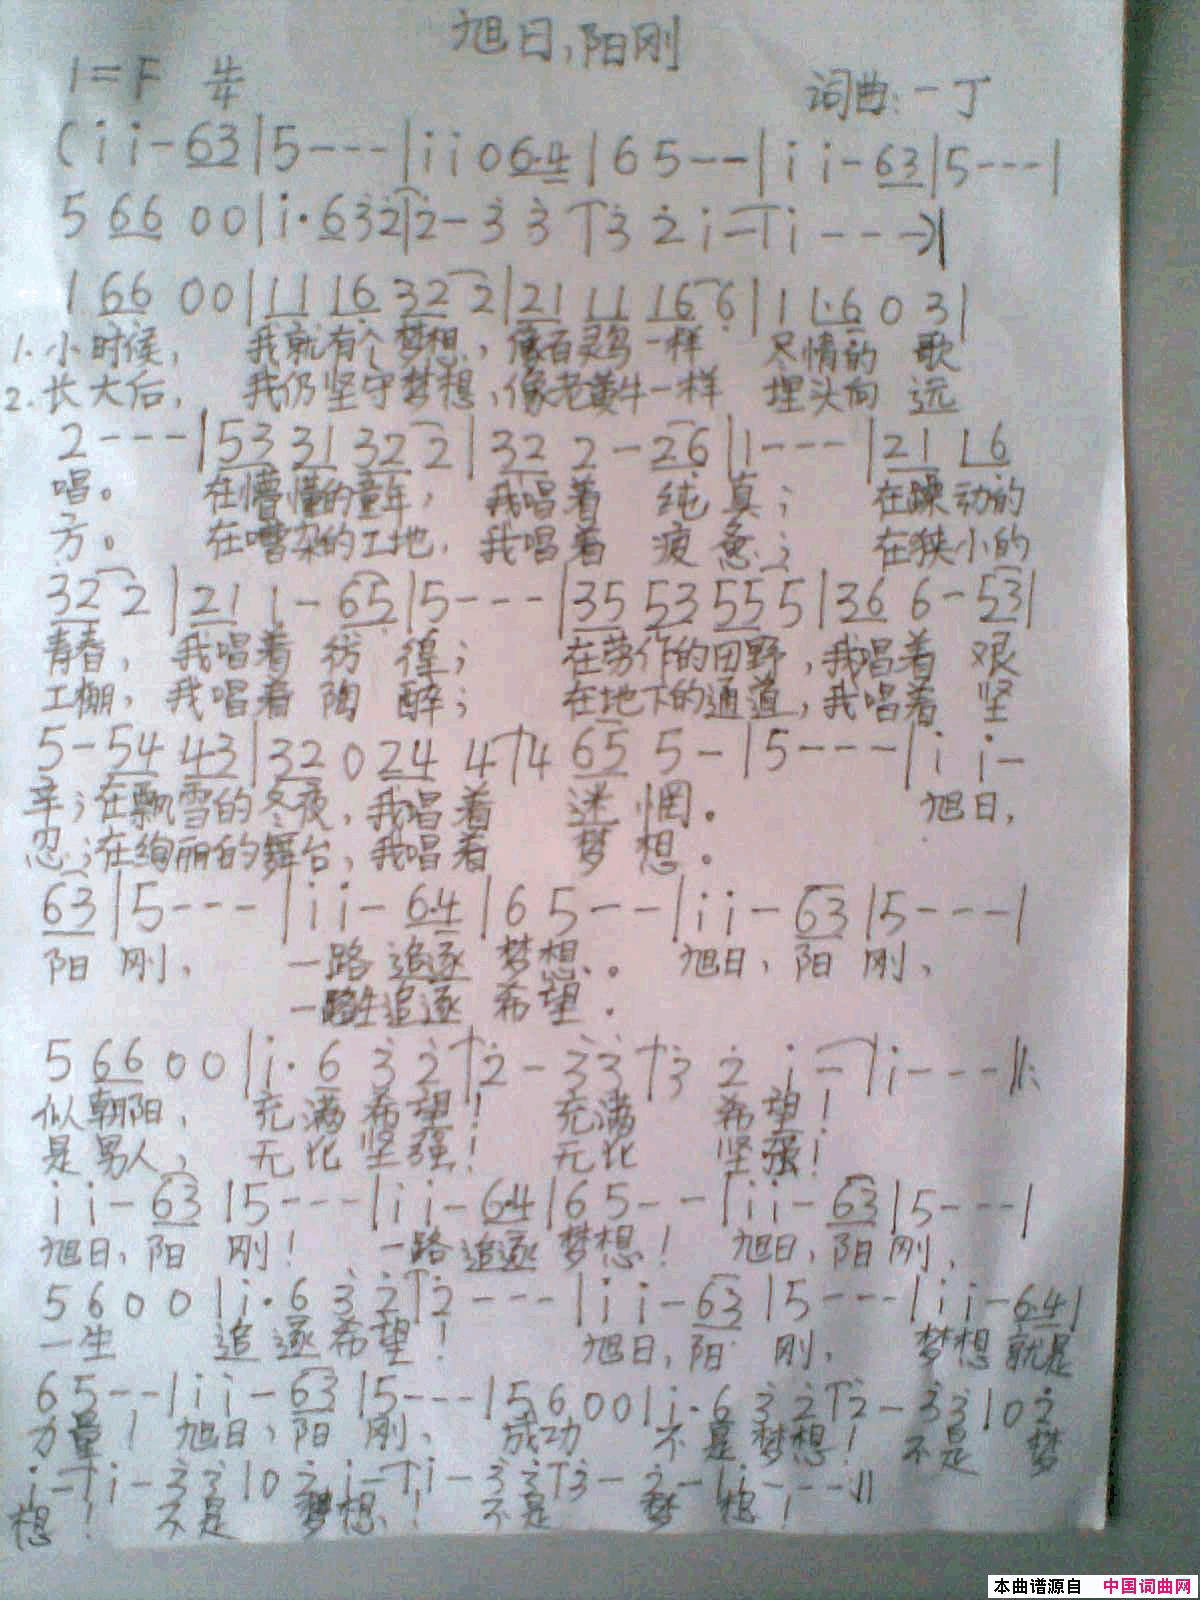 旭日,阳刚
1=F 4/4
词曲:一丁
(i i - 63|5 - - -|i i 0 6·4|6 5 - -|i i - 63|5 - - -|
5 66 0 0|i· 6 3 2|2 - 3 3|3 2 i -|i - - -)|
1 66 0 0|11 16 32 2|21 11 16 6|1 1·6 0 3|
1.小时候, 我就有个梦想,像百灵鸟一样 尽情的 歌
2.长大后, 我仍坚守梦想,像老黄牛一样 埋头向 远
2 - - -|53 31 32 2|32 2 - 26|1 - - -|21 16
唱。 在懵懂的童年, 我唱着 纯真; 在躁动的
方。 在嘈杂的工地, 我唱着 疲惫; 在狭小的
32 2|21 1 - 65|5 - - -|35 53 55 5|36 6 - 53|
青春, 我唱着 彷徨; 在劳作的田野,我唱着 艰
工棚, 我唱着 陶醉; 在地下的通道,我唱着 坚
5 - 54 43|32 0 24 4|4 65 5 -|5 - - -|i i -
辛;在飘雪的冬夜,我唱着 迷惘。 旭日,
忍;在绚丽的舞台,我唱着 梦想。
63|5 - - -|i i - 6·4|6 5 - -|i i - 63|5 - - -|
阳刚, 一路追逐 梦想。 旭日,阳刚,
一路追逐 希望.
5 66 0 0|i· 6 3 2|2 - 3 3|3 2 i -|i - - -:||
似朝阳, 充满希望! 充满 希望!
是男人, 无比坚强! 无比 坚强!
i i - 63|5 - - -|i i - 6·4|6 5 - -|i i - 63|5 - - -|
旭日,阳刚! 一路追逐梦想! 旭日,阳刚,
5 6 0 0|i· 6 3 2|2 - - -|i i - 63|5 - - -|i i - 6·4|
一生 追逐希望! 旭日,阳刚, 梦想就是
6 5 - -|i i - 63|5 - - -|5 6 0 0|i· 6 3 2|2 - 3 3|0 2
力量! 旭日,阳刚, 成功 不是梦想! 不是 梦
i -|i - 3 3|0 2 i -|i - 3 3|3 - 2 -|i - - -||
想! 不是 梦想! 不是 梦想!
本曲谱源自 中国词曲网